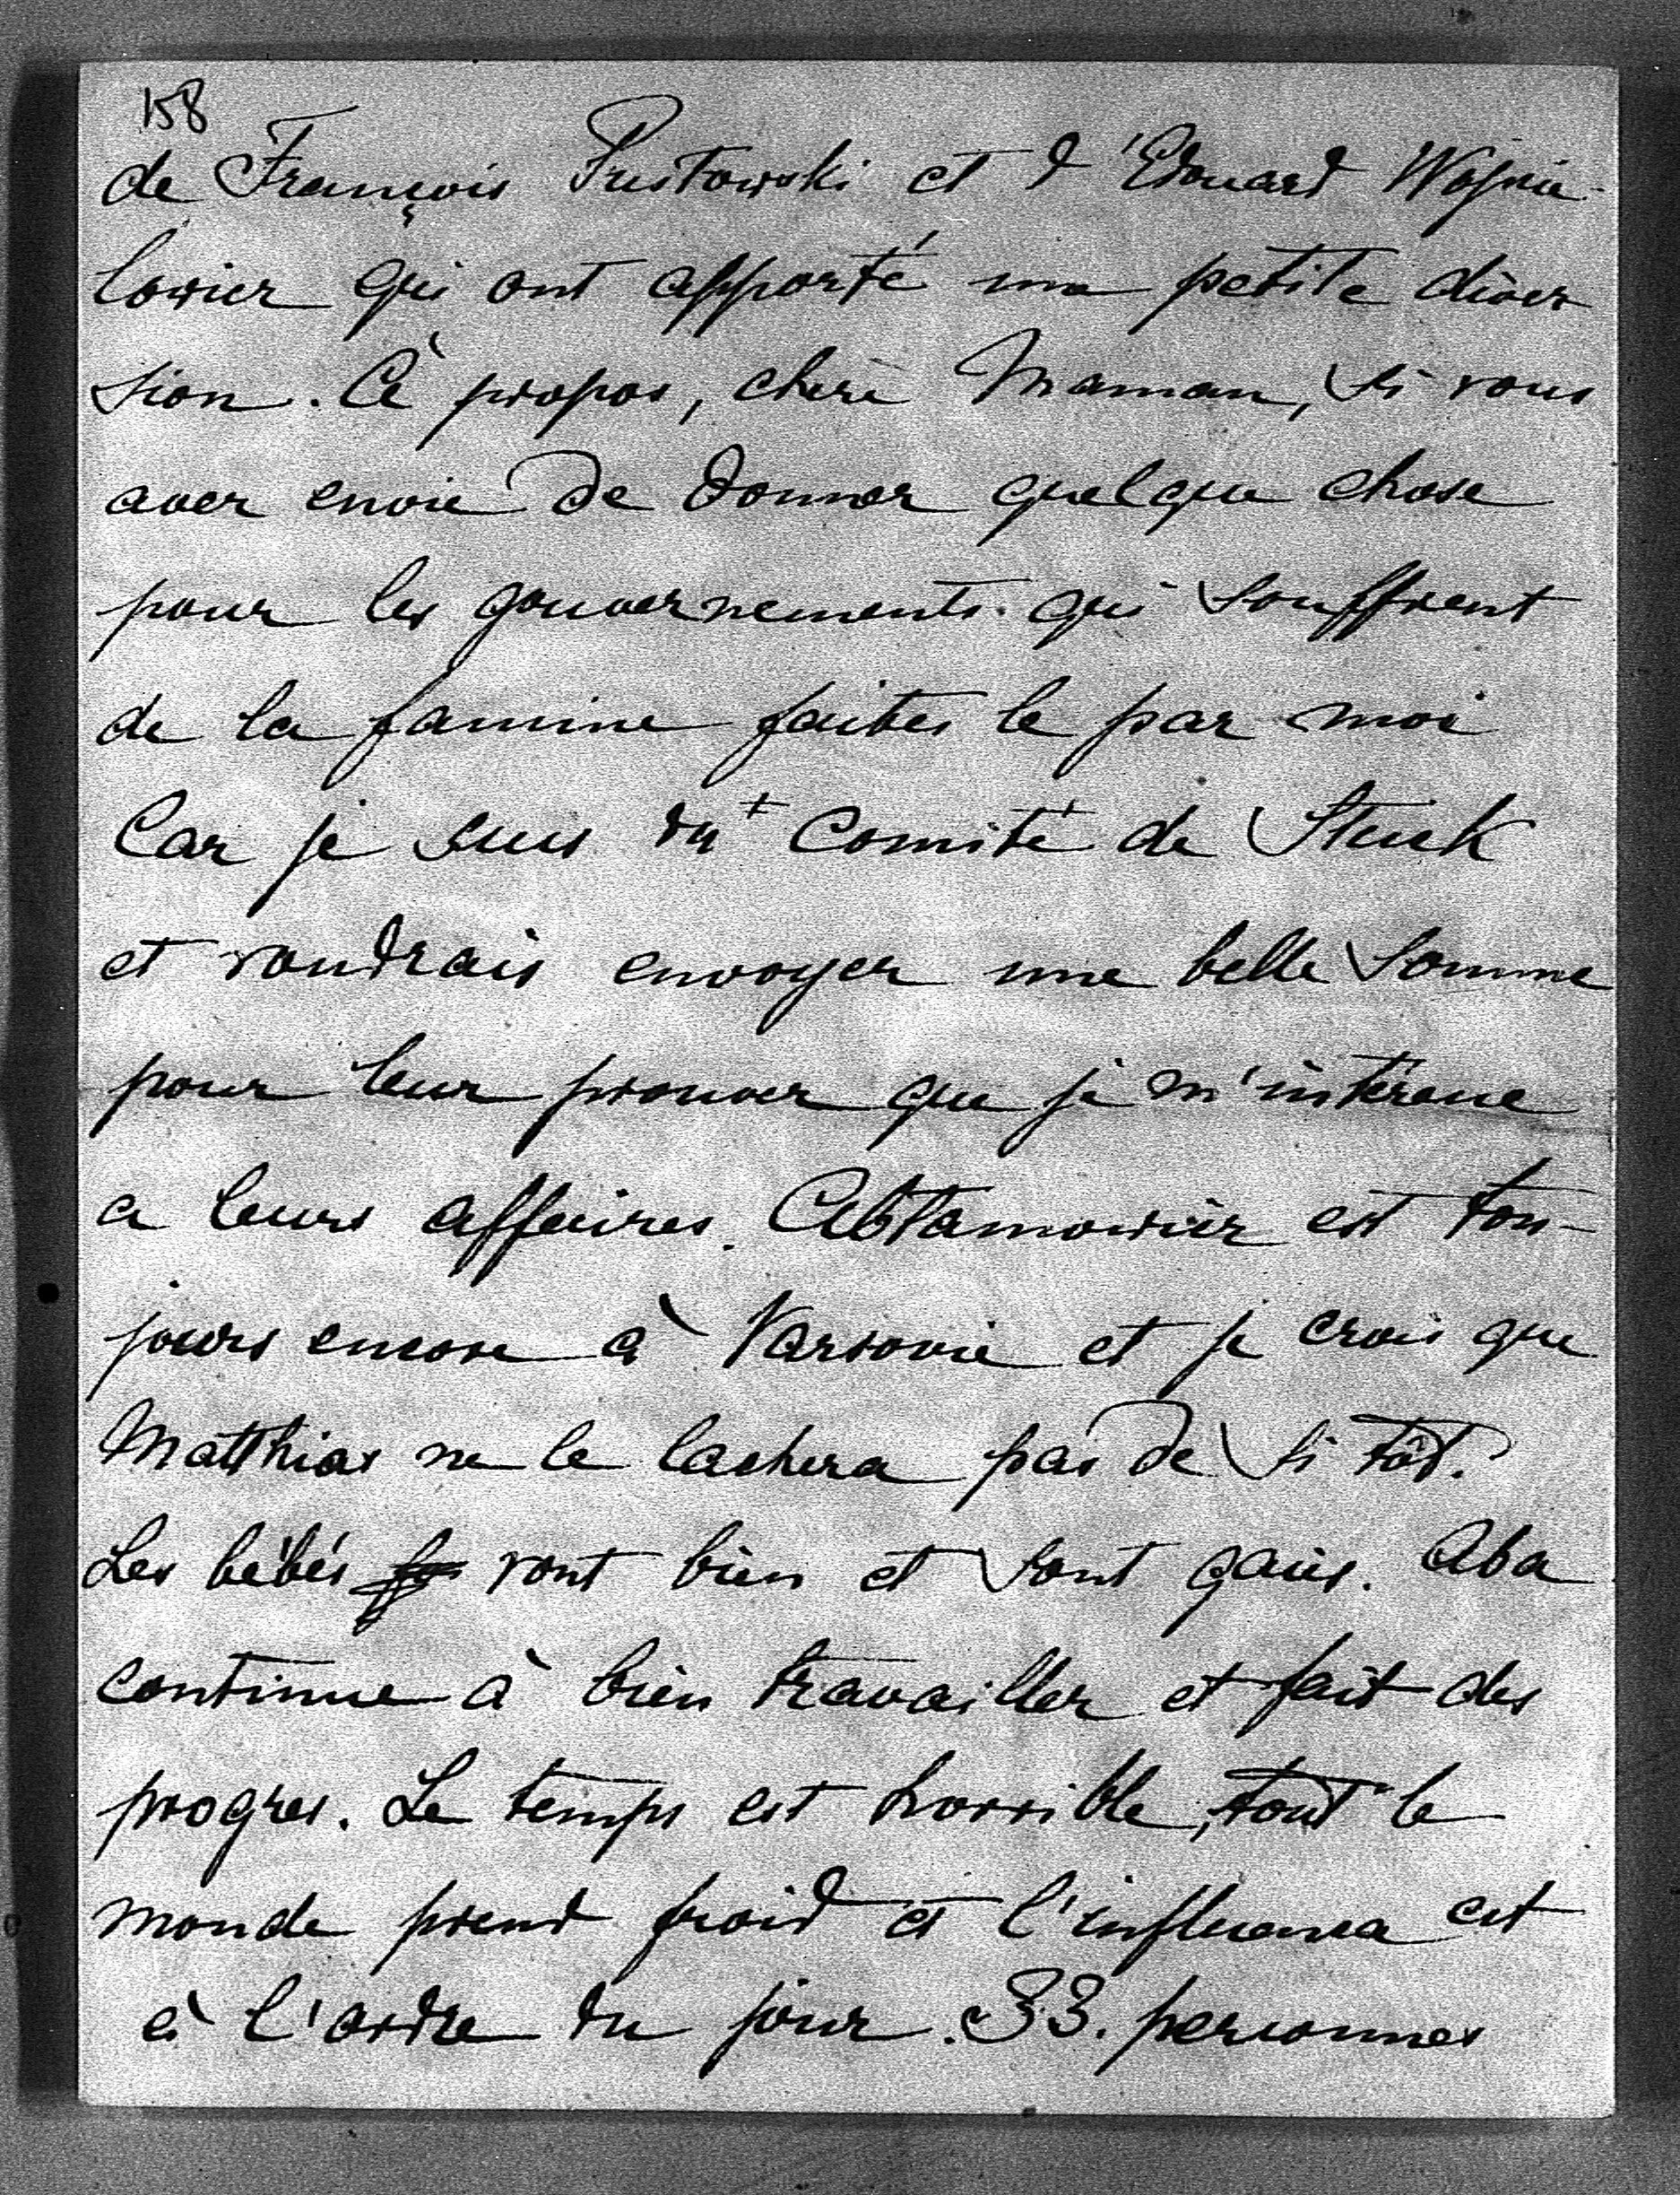 158
de François Pustowski et d'Edouard Wojnie-
lowier qui ont apporté une petite diver
sion. À propos, chère Maman, si vous
avez envie de donner quelque chose
pour les gouvernements qui souffrent
de la famine faites le par moi
Car je suis du comité de Stuck
et voudrais envoyer une belle somme
pour leur prouver que je m'intéresse
a leurs affaires. Abtamowicz est tou-
jours encore à Varsovie et je crois que
Matthias ne le lachera pas de si tôt.
Les bébés vont bien et sont gais. Aba
continue à bien travailler et fait des
progres. Le temps est horrible, tout le
monde prend froid et l'influenza est
à l'ordre du jour. 33. personnes